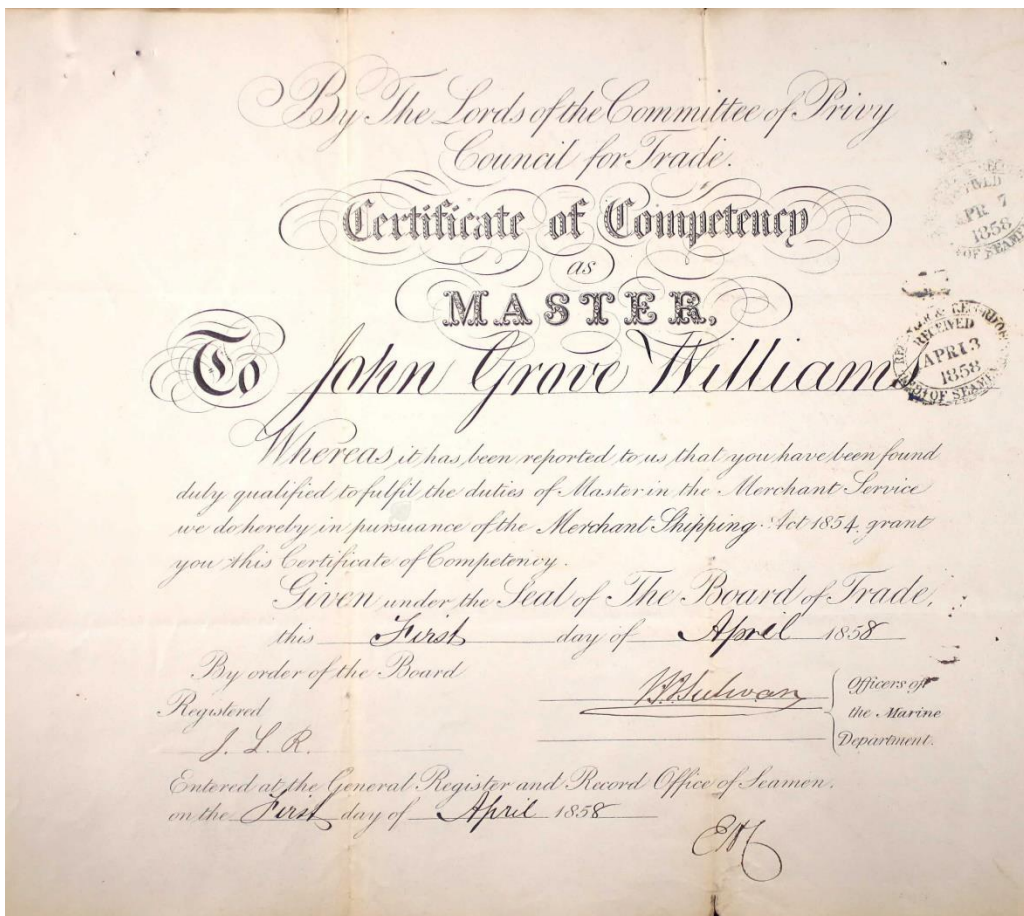 By The Lords of the Committee of Privy
Council for Trade.
Certificate of Competency
as
MASTER,
To John Grove Williams
Whereas it has been reported to us that you have been found
duly qualified to fulfil the duties of Master in the Merchant Service
we do hereby in pursuance of the Merchant Shipping Act 1854. grant
you this Certificate of Competency.
Given under the Seal of The Board of Trade,
this First day of April 1858
By order of the Board
Registered
J. L. R.
Officers of
the Marine
Department.
Entered at the General Register and Record Office of Seamen.
on the First day of April 1858
APR 7
1858
OF SEAMEN
RECEIVED
APR 13
1858
OF SEAMEN